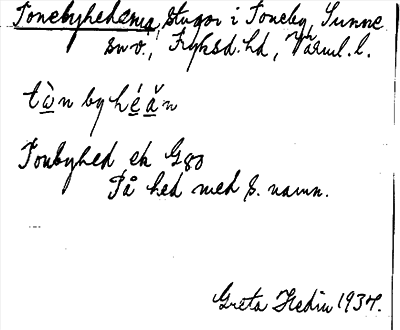 Tonebyhedarna, stugor i Toneby, Sunne
sn v., Fryksd. hd, Värml. l.
tὼn by hé̱ă̱n
Tonbyhed ek G80
På hed med s. namn.
Greta Hedin 1934.